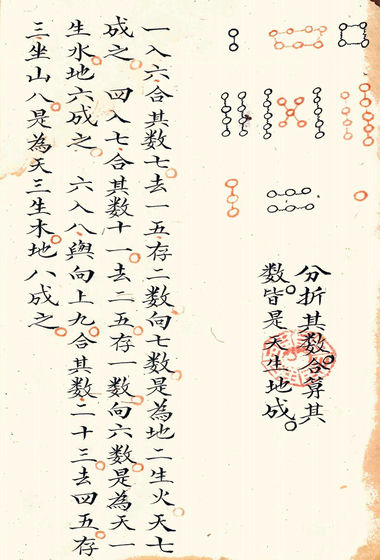 分折其数合算其
数皆是天生地成
一入六合其数七去一五存二数向七数是為地二生火天七
成之 四入七合其数十一去二五存一数向六数是為天一
生水地六成之 六入八與向上九合其数二十三去四五存
三坐山八是為天三生木地八成之